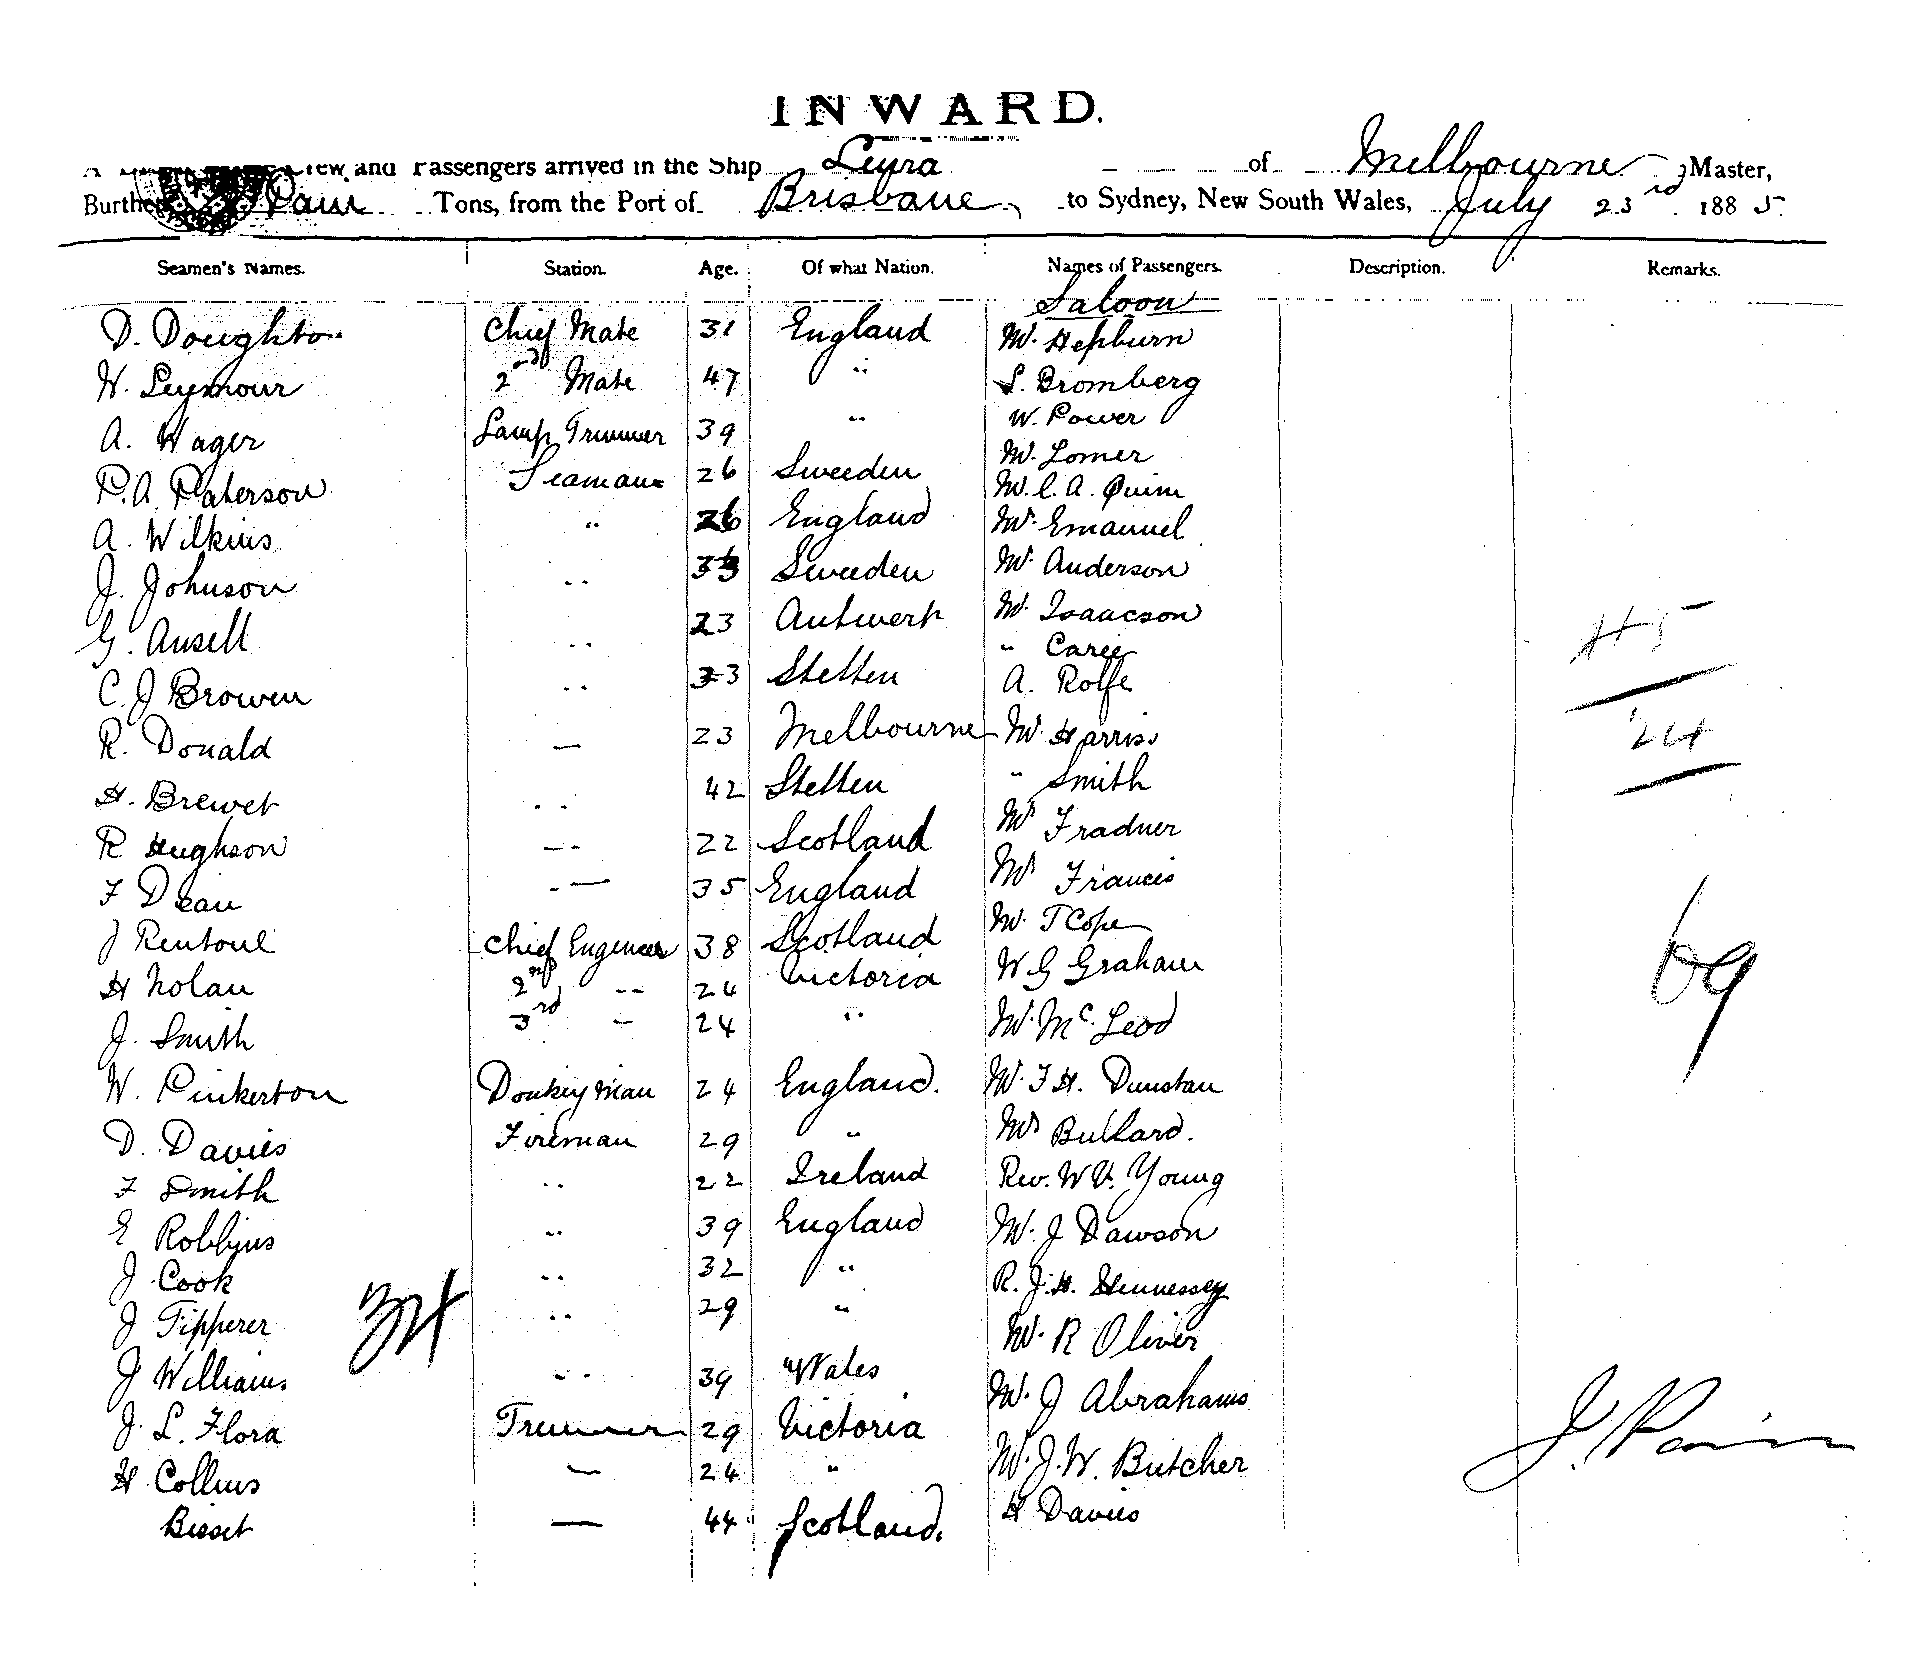 INWARD.
Crew and Passengers arrived in the Ship Leura of Melbourne, Master,
Burthen Pain Tons, from the Port of Brisbane, to Sydney, New South Wales, July 23rd 1885.
Seamen's Names. Station. Age. Of what Nation. Names of Passengers. Description. Remarks.
Saloon
D. Doughton Chief Mate 31 England Mr. Hepburn
W. Seymour 2nd Mate 47 " S. Bromberg
A. Wager Lamp Trimmer 39 " W. Power
P.A. Paterson Seaman 26 Sweeden Mr. Lomer
Mr. C. A. Quinn
A. Wilkins " 26 England Mr. Emanuel
J. Johnson " Sweeden Mr. Anderson
G. Ansell " 23 Antwerp Mr. Isaacson
" Carie
C. J Brown " 33 Stetten A. Rolfe
R. Donald — 23 Melbourne Mr. Harriss
H. Brewer " 42 Stetten " Smith
R Hughson " 22 Scotland Mrs Fradner
F Dean " 35 England Mrs Francis
J Rentoul Chief Engeneer 38 Scotland Mr. T Cope
H Nolan 2nd " 24 Victoria W G Graham
J. Smith 3rd " 24 " Mr. McLeod
W. Pinkerton Donkey Man 24 England. Mr. F H. Dunstan
D. Davies Fireman 29 " Mrs Bullard.
F Smith " 22 Ireland Rev. W V. Young
E Robbins " 39 England Mr. J Dawson
J Cook " 32 " R. J. H. Hennessey
J Tipperer " 29 " Mr. R Oliver
J Williams " 39 Wales Mr. J Abrahams
J. L. Flora Trimmer 29 Victoria Mr. J. W. Butcher
H Collins — 24 " H Davies
Bisset — 44 Scotland.
45
24
69
34
J. Pain